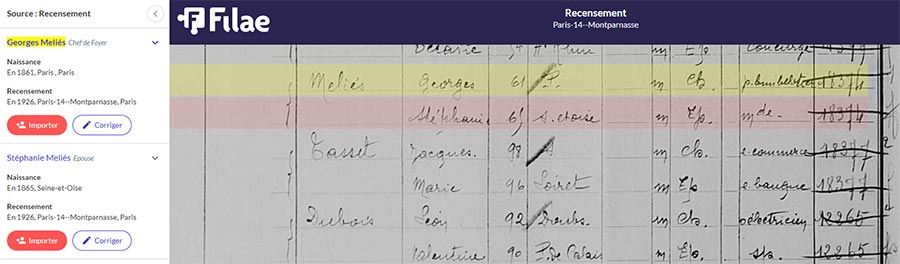 Source : Recensement
Georges Meliés Chef de Foyer
Naissance
En 1861, Paris , Paris
Recensement
En 1926, Paris-14--Montparnasse, Paris
Importer Corriger
Stéphanie Meliés Epouse
Naissance
En 1865, Seine-et-Oise
Recensement
En 1926, Paris-14--Montparnasse, Paris
Importer Corriger
Filae
Recensement
Paris-14--Montparnasse
m Ep. concierge
Meliés Georges 61 P. m Ch. 18374
Stéphanie 65 S. et oise m Ep. mde. 18374
Tasset Jacques 98 m Ch. e. commerce 18377
Marie 96 Loiret m Ep e. banque 18377
Dubois Léon 92 Doubs. m Ch. électricien 12265
Valentine 90 P. de Calais m Ep. 12265